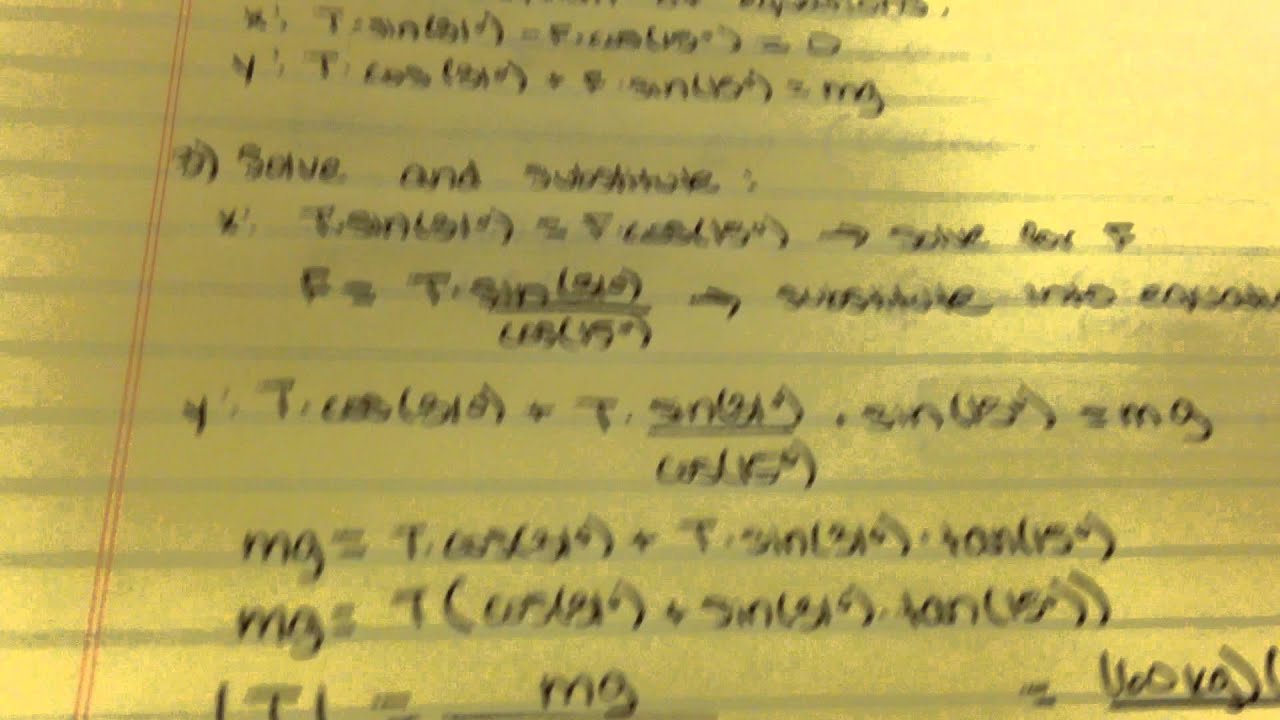 equations.
x: T·sin(31°) - F·cos(15°) = 0
y: T·cos(31°) + F·sin(15°) = mg
Solve and substitute:
x: T·sin(31°) = F·cos(15°) → solve for F
F = T·sin(31°)/cos(15°) → substitute into
y: T·cos(31°) + T·sin(31°)/cos(15°) · sin(15°) = mg
mg = T·cos(31°) + T·sin(31°)·tan(15°)
mg = T(cos(31°) + sin(31°)·tan(15°))
|T| = mg =